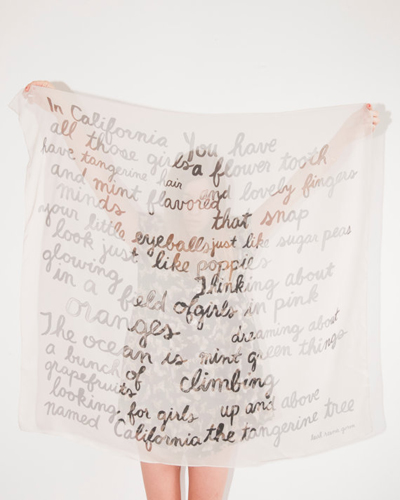 In California
all those girls
have tangerine hair
and mint flavored
minds
your little eyeballs
look just like poppies
glowing
in a field of
oranges
The ocean is
a bunch
of
grapefruits
looking for girls
named California
You have
a flower tooth
and lovely fingers
that snap
just like sugar peas
Thinking about
girls in pink
dreaming about
mint green things
climbing
up and above
the tangerine tree